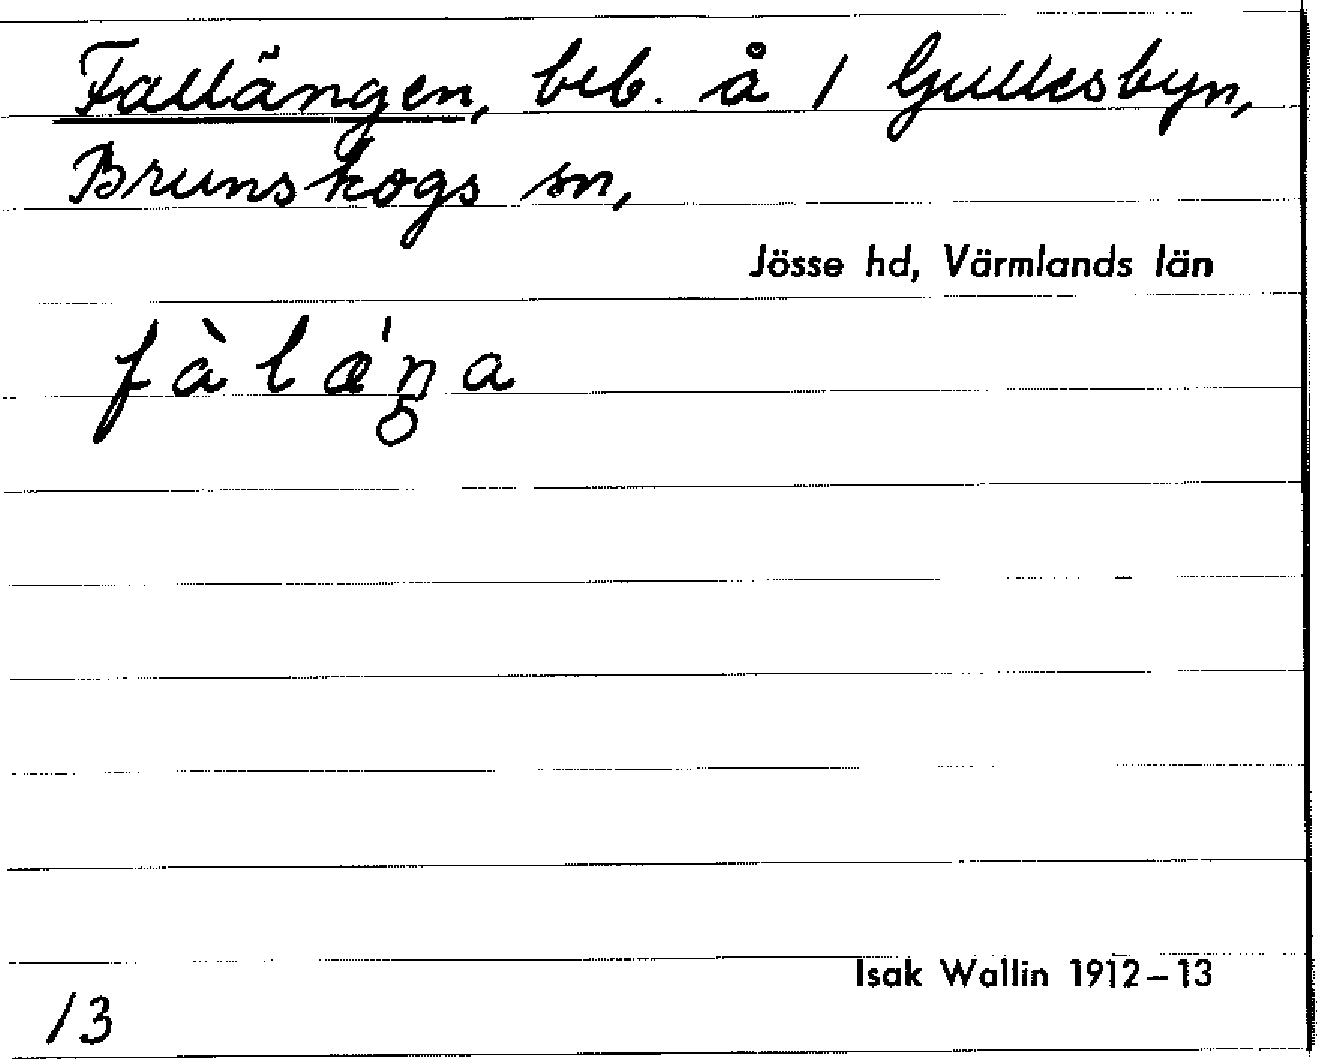 Fallängen, beb. å 1 Gullesbyn,
Brunskogs sn,
Jösse hd, Värmlands län
fàlǽŋa
Isak Wallin 1912–13
13